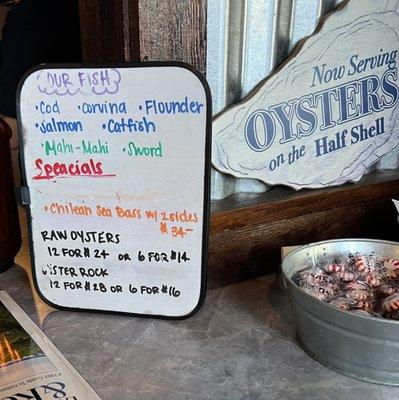 OUR FISH
• Cod • Corving • Flounder
• Salmon • Catfish
• Mahi-Mahi • Sword
Speacials
• Chilean Sea Bass w/ 2 sides
$34-
RAW OYSTERS
12 FOR $24 OR 6 FOR $14
OYSTER ROCK
12 FOR $28 OR 6 FOR $16
Now Serving
OYSTERS
on the Half Shell